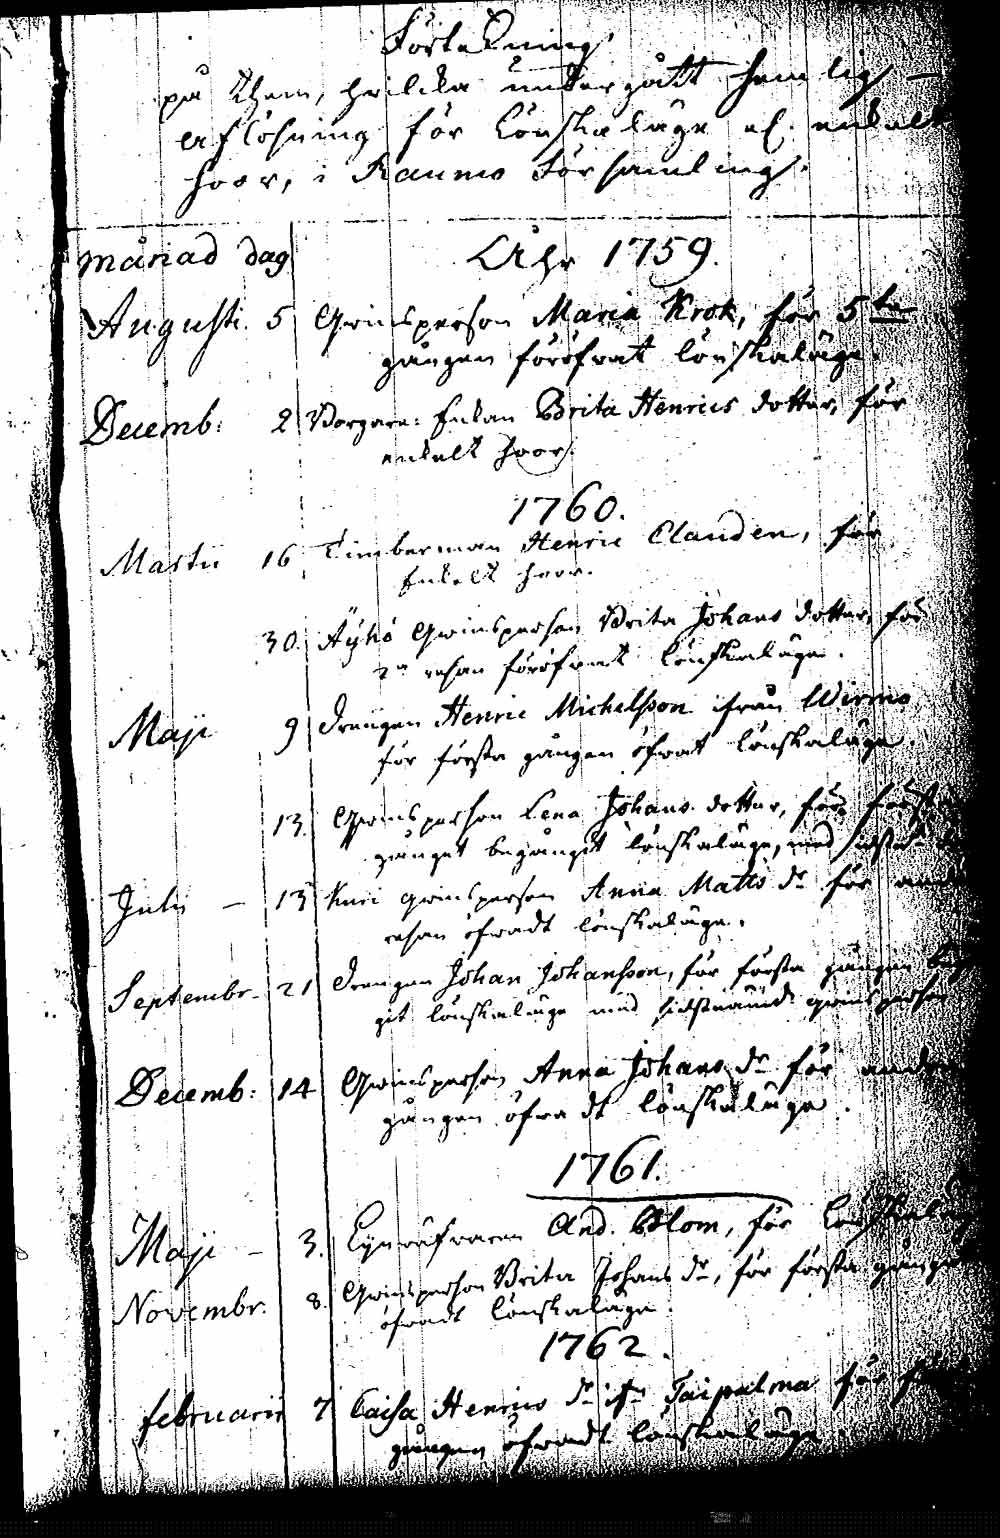 Förtekning
på them, hvilka undergått hemlig
aflösning för Lönskaläge el. enkelt
hoor, i Raumo Församling.
månad dag Åhr 1759.
Augusti. 5 Qvinsperson Maria Krok, för 5te
gången föröfvat lönskaläge.
Decemb: 2 Borgare: Enkan Brita Henrics dotter, för
enkelt hoor.
1760.
Martii 16 Timberman Henric Clauden, för
Enkelt hoor.
30. Äyhö Qvinsperson Brita Johans dotter, för
2a resan föröfvat Lönskaläge.
Maji 9 Drengen Henric Michelsson ifrån Wirmo
för första gången öfvat lönskaläge.
13. Qvinsperson Lena Johans dotter, för
gånget begångit lönskaläge, med
Julii - 13 qvinsperson Anna Matts dr för
resan öfvadt lönskaläge.
Septembr. 21 Drengen Johan Johansson, för första gången
git lönskaläge med sidstnämde qvinsperson
Decemb: 14 Qvinsperson Anna Johans dr för andra
gången öfvadt lönskaläge.
1761.
Maji - 3. And. Blom, för Lönskaläge
Novembr. 8. Qvinsperson Brita Johans dr, för första gången
öfvadt Lönskaläge.
1762.
februarii 7 Caisa Henrics dr ifrn Taipalma för
gången öfvadt lönskaläge